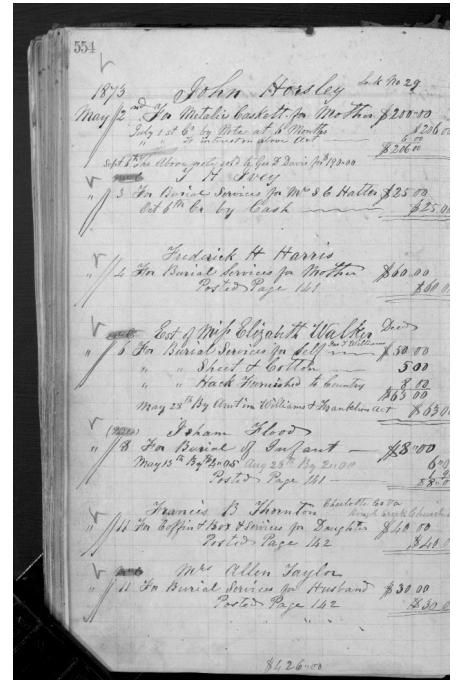 554
1873 John Horsley Lot No 29
May 2nd For Metalic Caskett for Mother $200.00
July 1st Cr by Note at 6 Months $206.00
" " To interest on above Act 6.00
$206.00
Sept 8th The Above note sold to Geo D Davis for 190.00
T H Ivey
" 3 For Burial Services for Mrs S C Hatter $25.00
Oct 6th Cr by Cash $25.00
Frederick H Harris
" 4 For Burial Services for Mother $60.00
Posted Page 141 $60.00
Est of Miss Elizabeth Walker Decd
" 6 For Burial Services for Self $50.00
" " Sheet & Cotton 5.00
" " Hack Furnished to Country 8.00
$63.00
May 28th By Amt in Williams & Franklin Act $63.00
Isham Flood
" 8 For Burial of Infant $8.00
May 13th By Aug 28th By 2.00
Posted Page 141 $8.00
Francis B Thornton Charlotte Co Va
Church
" 11 For Coffin & Box & Services for Daughter $40.00
Posted Page 142 $40.0
Mrs Allen Taylor
" 11 For Burial Services for Husband $30.00
Posted Page 142 $30.0
$426.00